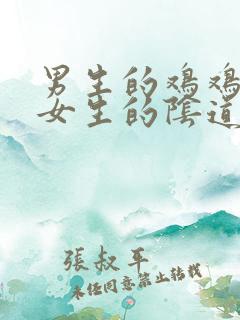 男生的鸡鸡
女生的陰道
張叔平
未经同意禁止转载